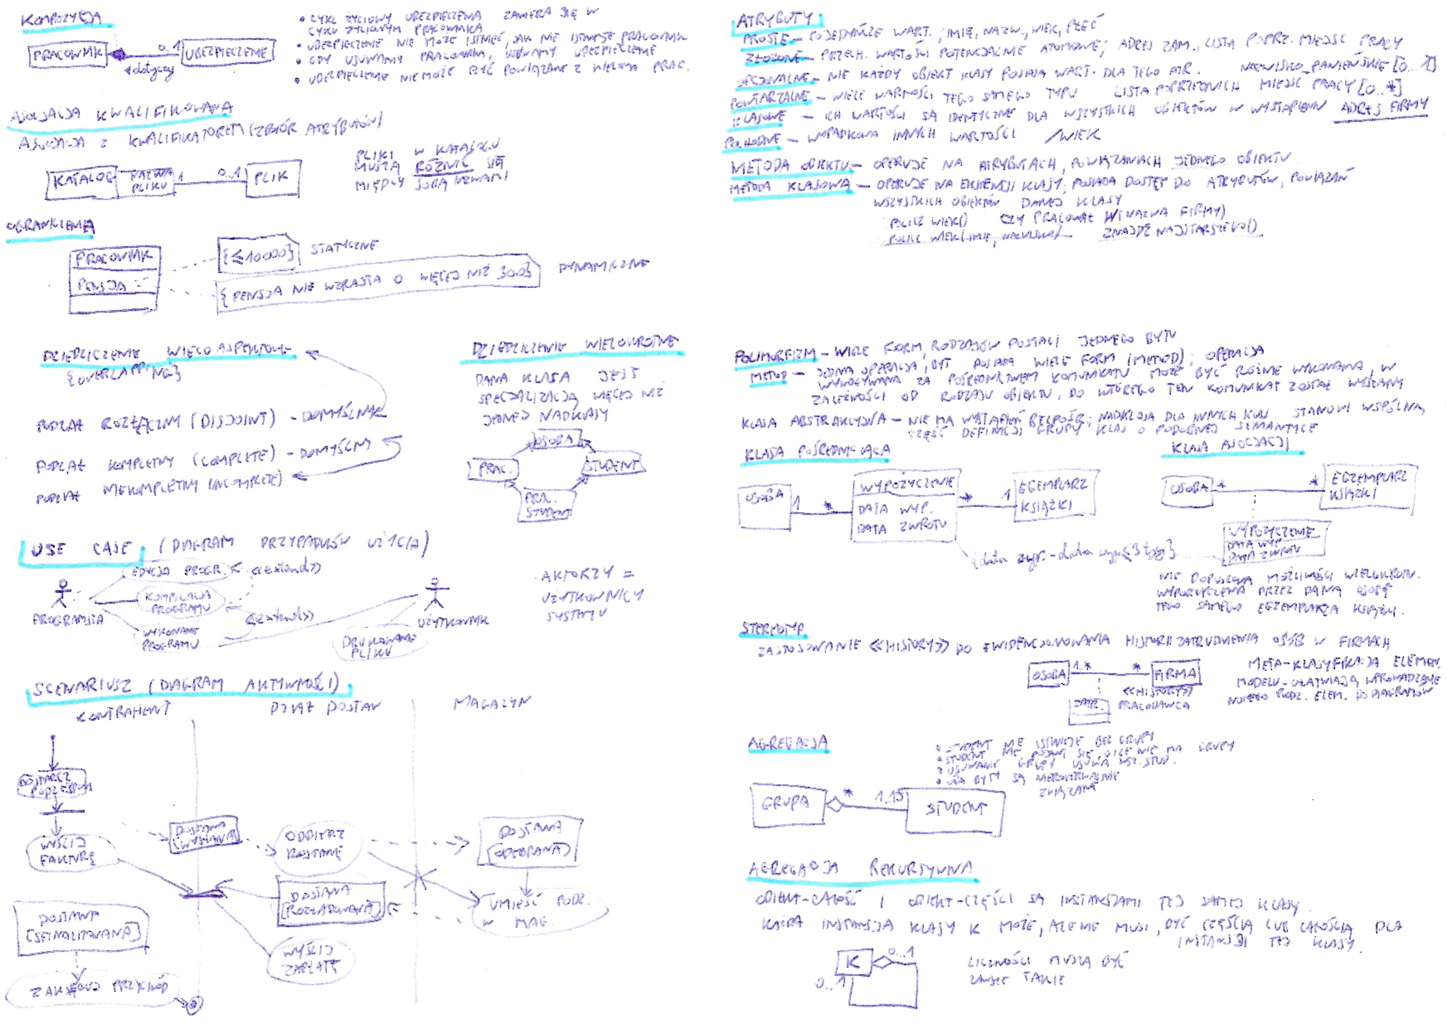 KOMPOZYCJA
PRACOWNIK 0..1 UBEZPIECZENIE
dotyczy
• CYKL ŻYCIOWY UBEZPIECZENIA ZAWIERA SIĘ W
CYKLU ŻYCIOWYM PRACOWNIKA
• UBEZPIECZENIE NIE MOŻE ISTNIEĆ, JAK NIE ISTNIEJE PRACOWNIK
• GDY USUWAMY PRACOWNIKA, USUWAMY UBEZPIECZENIE
• UBEZPIECZENIE NIE MOŻE BYĆ POWIĄZANE Z WIELOMA PRAC.
ASOCJACJA KWALIFIKOWANA
ASOCJACJA Z KWALIFIKATOREM (ZBIÓR ATRYBUTÓW)
KATALOG NAZWA PLIKU 1 0..1 PLIK
PLIKI W KATALOGU
MUSZĄ RÓŻNIĆ SIĘ
MIĘDZY SOBĄ NAZWAMI
OGRANICZENIA
PRACOWNIK
PENSJA
{≤10000} STATYCZNE
{PENSJA NIE WZRASTA O WIĘCEJ NIŻ 300} DYNAMICZNE
DZIEDZICZENIE WIELOASPEKTOWE
{OVERLAPPING}
PODZIAŁ ROZŁĄCZNY (DISJOINT) - DOMYŚLNY
PODZIAŁ KOMPLETNY (COMPLETE) - DOMYŚLNY
PODZIAŁ NIEKOMPLETNY (INCOMPLETE)
DZIEDZICZENIE WIELOKROTNE
DANA KLASA JEST
SPECJALIZACJĄ WIĘCEJ NIŻ
JEDNEJ NADKLASY
OSOBA
PRAC. STUDENT
PRAC. STUDENT
USE CASE (DIAGRAM PRZYPADKÓW UŻYCIA)
PROGRAMISTA
EDYCJA PROGR. <<extend>>
KOMPILACJA PROGRAMU
<<extend>>
WYKONANIE PROGRAMU
DRUKOWANIE PLIKU
UŻYTKOWNIK
AKTORZY =
UŻYTKOWNICY
SYSTEMU
SCENARIUSZ (DIAGRAM AKTYWNOŚCI)
KONTRAHENT DZIAŁ DOSTAW MAGAZYN
DOSTARCZ PODZESPOŁY
WYŚLIJ FAKTURĘ
DOSTAWA [WYSŁANA]
ODBIERZ DOSTAWĘ
DOSTAWA [ODEBRANA]
DOSTAWA [ROZŁADOWANA]
UMIEŚĆ PODZ. W MAG.
WYŚLIJ ZAPŁATĘ
DOSTAWA [SFINALIZOWANA]
ZAKSIĘGUJ PRZYCHÓD
ATRYBUTY
PROSTE - POJEDYŃCZE WART. IMIĘ, NAZW, WIEK, PŁEĆ
ZŁOŻONE - PRZECH. WARTOŚCI POTENCJALNIE ATOMOWE; ADRES ZAM., LISTA POPRZ. MIEJSC PRACY
OPCJONALNE - NIE KAŻDY OBIEKT KLASY POSIADA WART. DLA TEGO ATR. NAZWISKO_PANIEŃSKIE [0..1]
POWTARZALNE - WIELE WARTOŚCI TEGO SAMEGO TYPU LISTA POPRZEDNICH MIEJSC PRACY [0..*]
KLASOWE - ICH WARTOŚCI SĄ IDENTYCZNE DLA WSZYSTKICH OBIEKTÓW W WYSTĄPIENIU ADRES FIRMY
POCHODNE - WYPADKOWA INNYCH WARTOŚCI /WIEK
METODA OBIEKTU - OPERUJE NA ATRYBUTACH, POWIĄZANIACH JEDNEGO OBIEKTU
METODA KLASOWA - OPERUJE NA EKSTENSJI KLASY, POSIADA DOSTĘP DO ATRYBUTÓW, POWIĄZAŃ
WSZYSTKICH OBIEKTÓW DANEJ KLASY
POLICZ WIEK() CZY PRACOWAŁ W(NAZWA FIRMY)
POLICZ WIEK(IMIĘ, NAZWISKO) ZNAJDŹ NAJSTARSZEGO()
POLIMORFIZM - WIELE FORM, RODZAJÓW POSTACI JEDNEGO BYTU
METOD - JEDNA OPERACJA, BYT POSIADA WIELE FORM (METOD); OPERACJA
WYWOŁYWANA ZA POŚREDNICTWEM KOMUNIKATU MOŻE BYĆ RÓŻNIE WYKONANA, W
ZALEŻNOŚCI OD RODZAJU OBIEKTU, DO KTÓREGO TEN KOMUNIKAT ZOSTAŁ WYSŁANY
KLASA ABSTRAKCYJNA - NIE MA WYSTĄPIEŃ BEZPOŚR; NADKLASA DLA INNYCH KLAS. STANOWI WSPÓLNĄ
CZĘŚĆ DEFINICJI GRUPY KLAS O PODOBNEJ SEMANTYCE
KLASA POŚREDNICZĄCA
OSOBA 1 * WYPOŻYCZENIE * 1 EGZEMPLARZ KSIĄŻKI
DATA WYP.
DATA ZWROTU
KLASA ASOCJACJI
OSOBA * * EGZEMPLARZ KSIĄŻKI
WYPOŻYCZENIE
DATA WYP
DATA ZWROTU
NIE DOPUSZCZA MOŻLIWOŚCI WIELOKROTN.
WYPOŻYCZENIA PRZEZ DANĄ OSOBĘ
TEGO SAMEGO EGZEMPLARZA KSIĄŻKI.
STEREOTYP
ZASTOSOWANIE <<HISTORY>> DO EWIDENCJONOWANIA HISTORII ZATRUDNIENIA OSÓB W FIRMACH
OSOBA 1..* * FIRMA
<<HISTORY>>
PRACODAWCA
META-KLASYFIKACJA ELEMEN.
MODELU - UŁATWIAJĄ WPROWADZANIE
NOWEGO RODZ. ELEM. DO DIAGRAMÓW
AGREGACJA
• STUDENT NIE ISTNIEJE BEZ GRUPY
• USUWANIE GRUPY USUWA WSZ. STUD.
• OBA BYTY SĄ NIEROZERWALNIE
ZWIĄZANE
GRUPA * 1..15 STUDENT
AGREGACJA REKURSYWNA
OBIEKT-CAŁOŚĆ I OBIEKT-CZĘŚCI SĄ INSTANCJAMI TEJ SAMEJ KLASY.
KAŻDA INSTANCJA KLASY K MOŻE, ALE NIE MUSI, BYĆ CZĘŚCIĄ LUB CAŁOŚCIĄ DLA
INSTANCJI TEJ KLASY.
K 0..1
0..1
LICZNOŚCI MUSZĄ BYĆ
ZAWSZE TAKIE